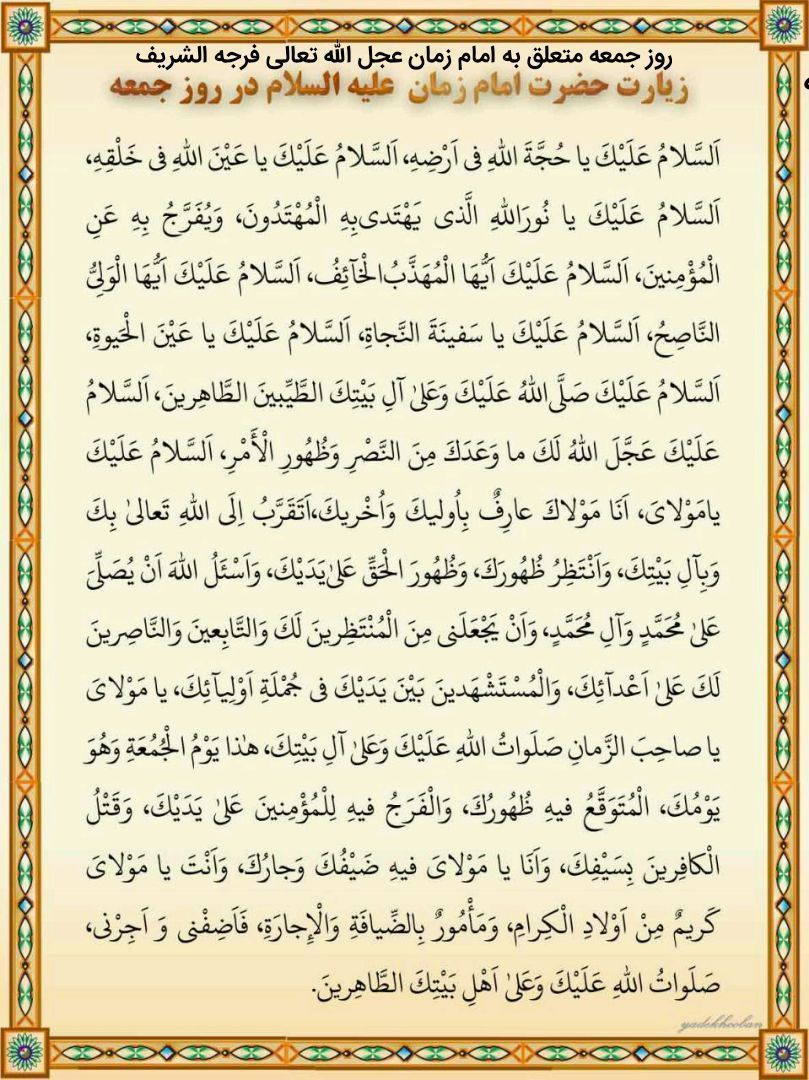 روز جمعه متعلق به امام زمان عجل الله تعالی فرجه الشریف
زیارت حضرت امام زمان علیه السلام در روز جمعه
اَلسَّلامُ عَلَيْكَ يا حُجَّةَ اللهِ فى اَرْضِهِ، اَلسَّلامُ عَلَيْكَ يا عَيْنَ اللهِ فى خَلْقِهِ،
اَلسَّلامُ عَلَيْكَ يا نُورَاللهِ الَّذى يَهْتَدى‌بِهِ الْمُهْتَدُونَ، وَيُفَرَّجُ بِهِ عَنِ
الْمُؤْمِنينَ، اَلسَّلامُ عَلَيْكَ اَيُّهَا الْمُهَذَّبُ‌الْخَآئِفُ، اَلسَّلامُ عَلَيْكَ اَيُّهَا الْوَلِىُّ
النَّاصِحُ، اَلسَّلامُ عَلَيْكَ يا سَفينَةَ النَّجاةِ، اَلسَّلامُ عَلَيْكَ يا عَيْنَ الْحَيوةِ،
اَلسَّلامُ عَلَيْكَ صَلَّى‌اللهُ عَلَيْكَ وَعَلىٰ آلِ بَيْتِكَ الطَّيِّبينَ الطَّاهِرينَ، اَلسَّلامُ
عَلَيْكَ عَجَّلَ اللهُ لَكَ ما وَعَدَكَ مِنَ النَّصْرِ وَظُهُورِ الْأَمْرِ، اَلسَّلامُ عَلَيْكَ
يامَوْلاىَ، اَنَا مَوْلاكَ عارِفٌ بِاُوليكَ وَاُخْريكَ،اَتَقَرَّبُ اِلَى اللهِ تَعالىٰ بِكَ
وَبِآلِ بَيْتِكَ، وَاَنْتَظِرُ ظُهُورَكَ، وَظُهُورَ الْحَقِّ عَلىٰ‌يَدَيْكَ، وَاَسْئَلُ اللهَ اَنْ يُصَلِّىَ
عَلىٰ مُحَمَّدٍ وَآلِ مُحَمَّدٍ، وَاَنْ يَجْعَلَنى مِنَ الْمُنْتَظِرينَ لَكَ وَالتَّابِعينَ وَالنَّاصِرينَ
لَكَ عَلىٰ اَعْدآئِكَ، وَالْمُسْتَشْهَدينَ بَيْنَ يَدَيْكَ فى جُمْلَةِ اَوْلِيآئِكَ، يا مَوْلاىَ
يا صاحِبَ الزَّمانِ صَلَواتُ اللهِ عَلَيْكَ وَعَلىٰ آلِ بَيْتِكَ، هٰذا يَوْمُ الْجُمُعَةِ وَهُوَ
يَوْمُكَ، الْمُتَوَقَّعُ فيهِ ظُهُورُكَ، وَالْفَرَجُ فيهِ لِلْمُؤْمِنينَ عَلىٰ يَدَيْكَ، وَقَتْلُ
الْكافِرينَ بِسَيْفِكَ، وَاَنَا يا مَوْلاىَ فيهِ ضَيْفُكَ وَجارُكَ، وَاَنْتَ يا مَوْلاىَ
كَريمٌ مِنْ اَوْلادِ الْكِرامِ، وَمَأْمُورٌ بِالضِّيافَةِ وَالْإِجارَةِ، فَاَضِفْنى وَ اَجِرْنى،
صَلَواتُ اللهِ عَلَيْكَ وَعَلىٰ اَهْلِ بَيْتِكَ الطَّاهِرينَ.
yadekhooban